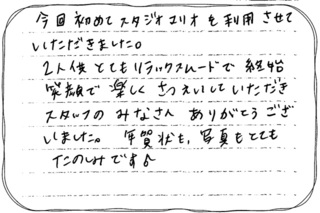 今回初めてスタジオマリオを利用させて
いただきました。
2人供とてもリラックスムードで終始
笑顔で楽しくさつえいしていただき
スタッフのみなさんありがとうござ
いました。年賀状も、写真もとても
たのしみです♪